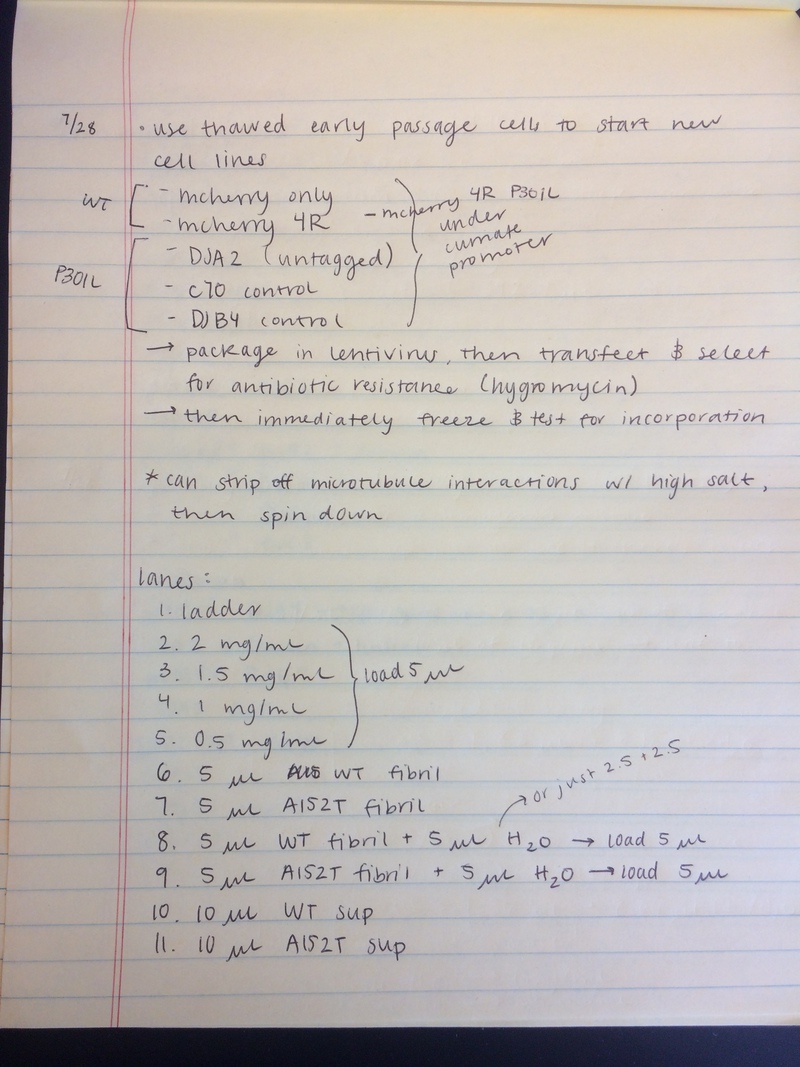 7/28 • use thawed early passage cells to start new
cell lines
WT
- mcherry only
- mcherry 4R
- mcherry 4R P301L
under
cumate
promoter
P301L
- DJA2 (untagged)
- c70 control
- DJB4 control
→ package in lentivirus, then transfect & select
for antibiotic resistance (hygromycin)
→ then immediately freeze & test for incorporation
* can strip off microtubule interactions w/ high salt,
then spin down
lanes:
1. ladder
2. 2 mg/mL
3. 1.5 mg/mL
4. 1 mg/mL
5. 0.5 mg/mL
load 5 μL
6. 5 μL WT fibril
7. 5 μL A152T fibril
→ or just 2.5 + 2.5
8. 5 μL WT fibril + 5 μL H₂O → load 5 μL
9. 5 μL A152T fibril + 5 μL H₂O → load 5 μL
10. 10 μL WT sup
11. 10 μL A152T sup